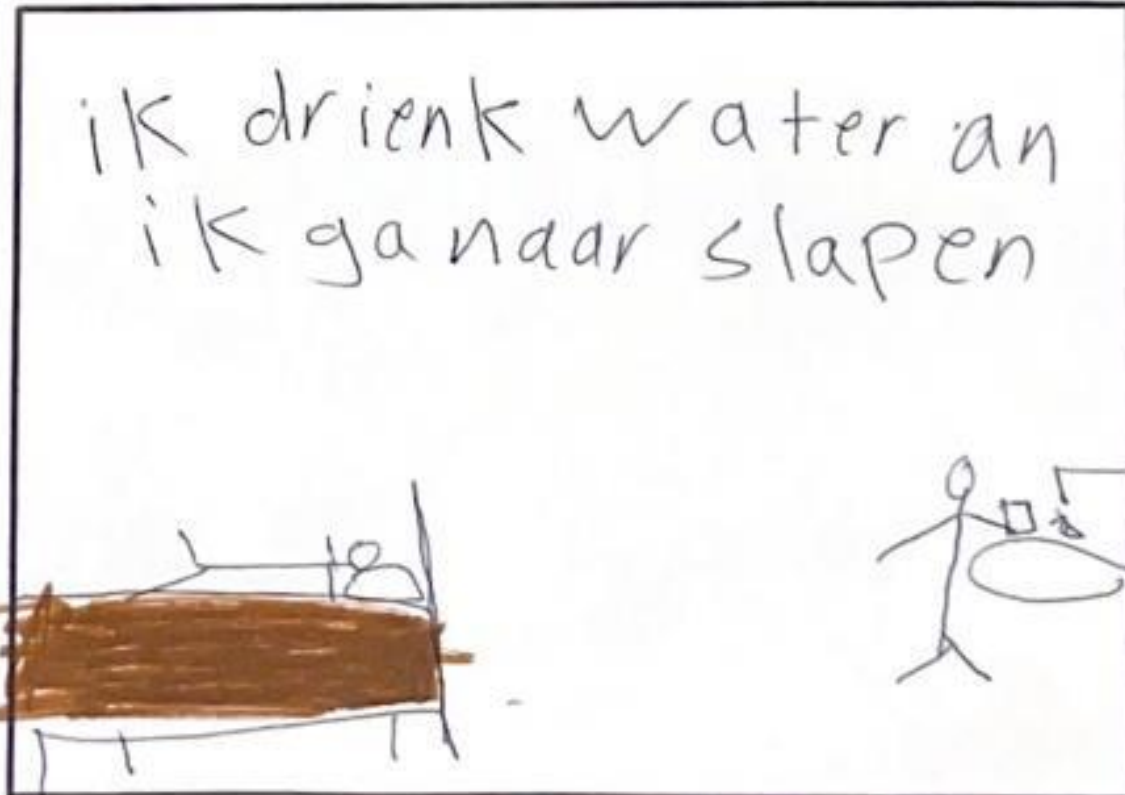 ik drienk water an
ik ga naar slapen